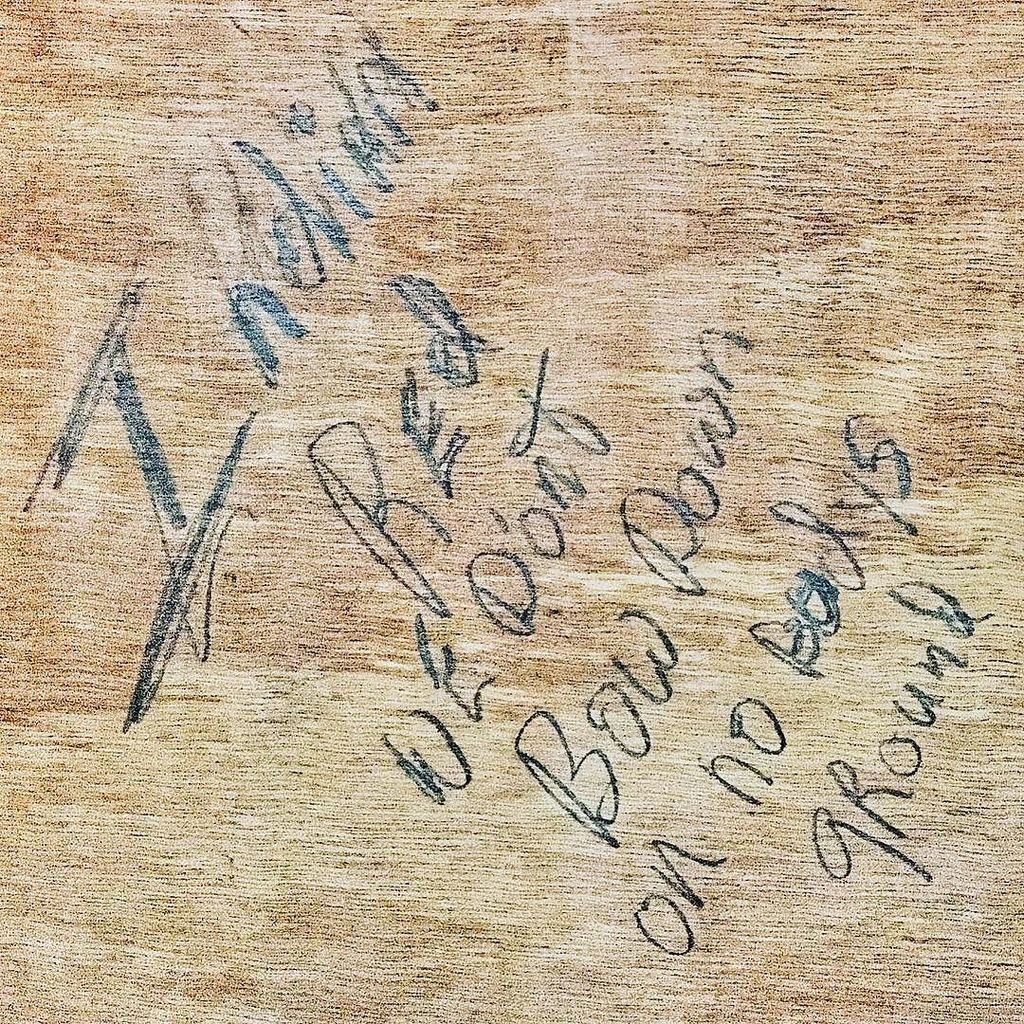 Indians
Red
WE Don't
Bow Down
on no Bodys
gRound